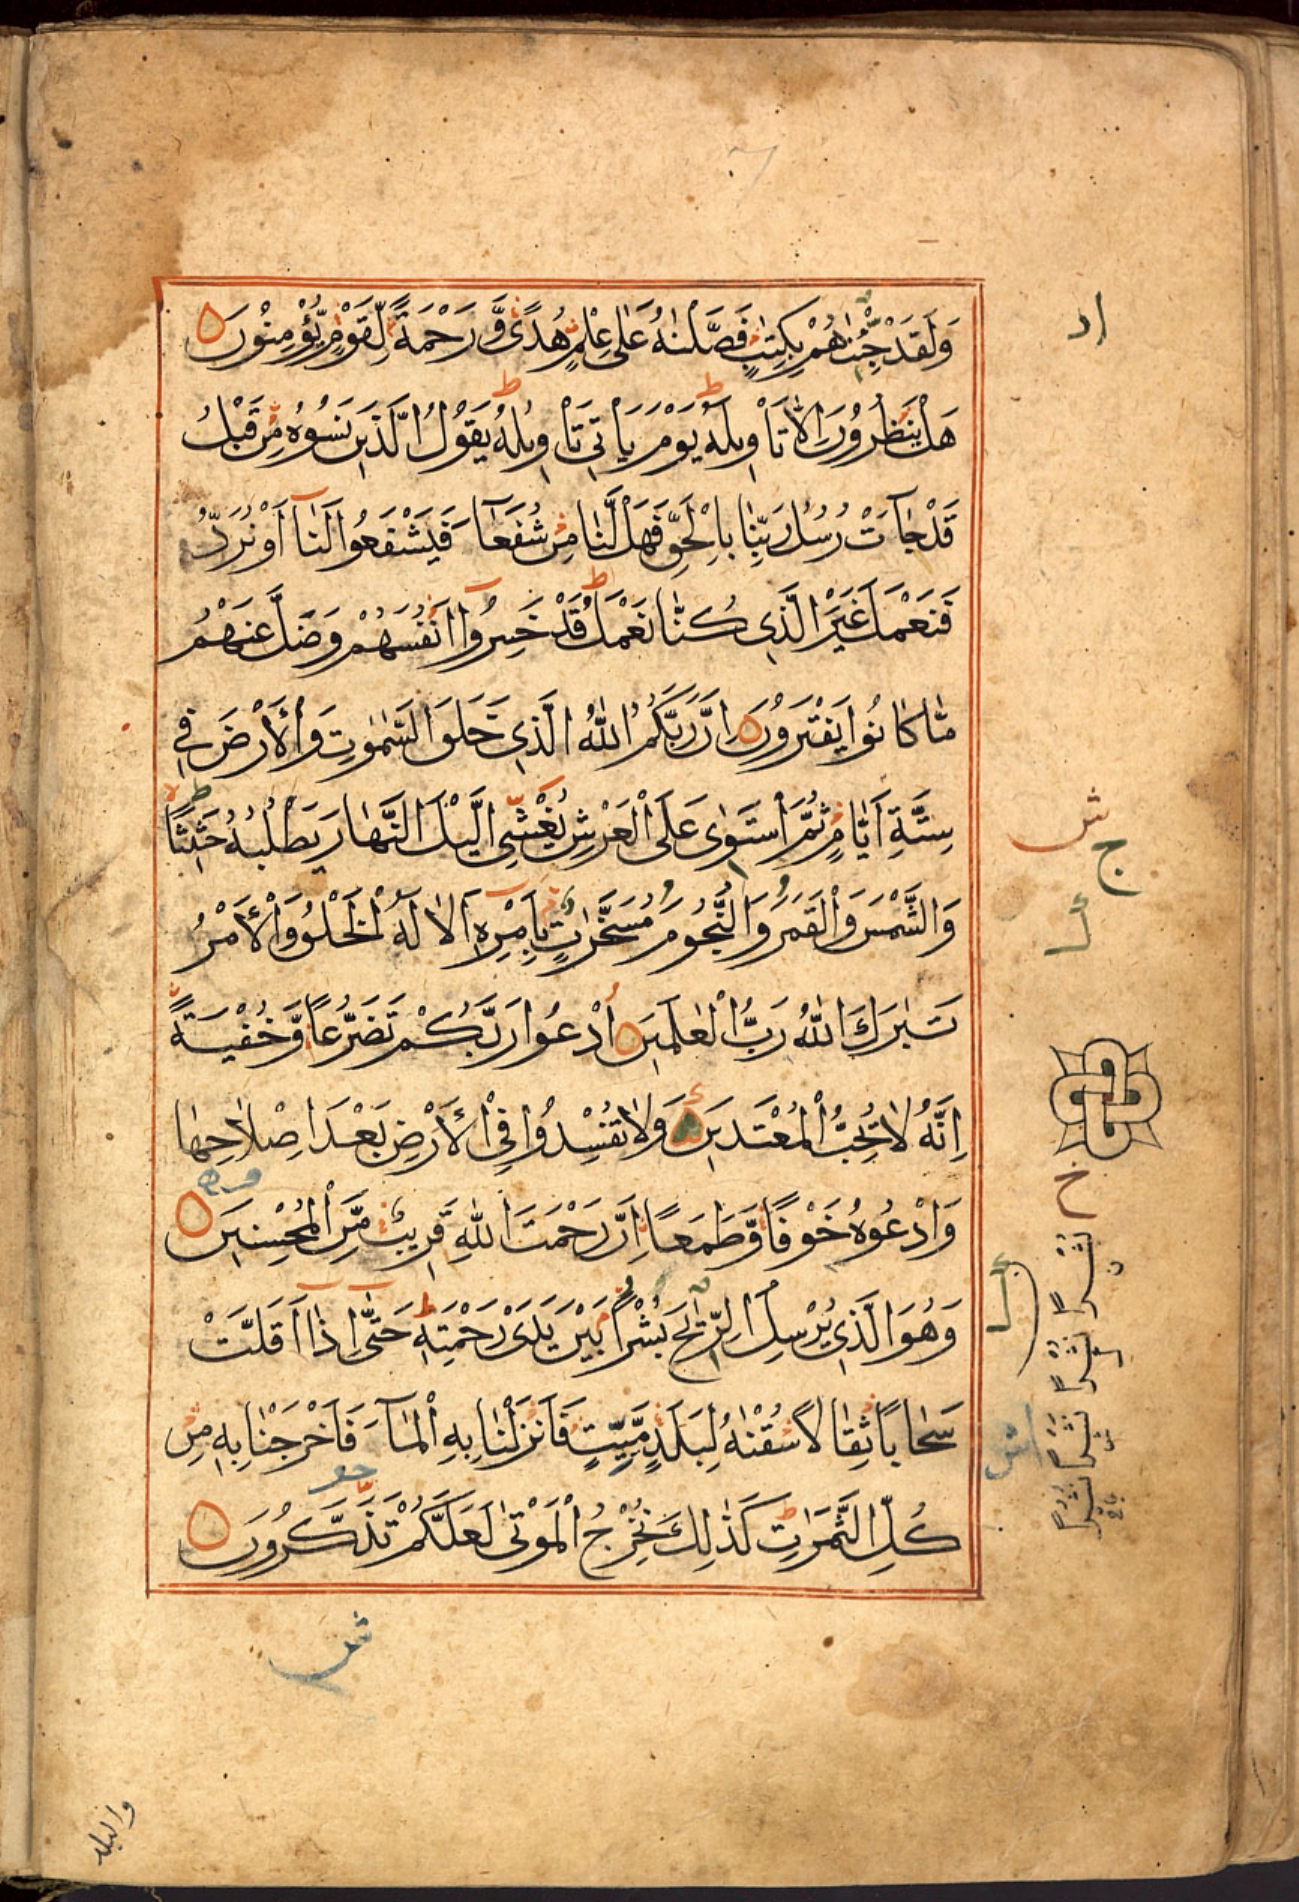 وَلَقَدْ جِئْنٰهُمْ بِكِتٰبٍ فَصَّلْنٰهُ عَلٰى عِلْمٍ هُدًى وَّرَحْمَةً لِّقَوْمٍ يُّؤْمِنُوْنَ
هَلْ يَنْظُرُوْنَ اِلَّا تَأْوِيلَهُ يَوْمَ يَاْتِي تَاْوِيلُهُ يَقُوْلُ الَّذِينَ نَسُوْهُ مِنْ قَبْلُ
قَدْ جَآءَتْ رُسُلُ رَبِّنَا بِالْحَقِّ فَهَلْ لَّنَا مِنْ شُفَعَآءَ فَيَشْفَعُوا لَنَآ اَوْ نُرَدُّ
فَنَعْمَلَ غَيْرَ الَّذِي كُنَّا نَعْمَلُ قَدْ خَسِرُوْٓا اَنْفُسَهُمْ وَضَلَّ عَنْهُمْ
مَّا كَانُوا يَفْتَرُوْنَ اِنَّ رَبَّكُمُ اللّٰهُ الَّذِي خَلَقَ السَّمٰوٰتِ وَالْاَرْضَ فِي
سِتَّةِ اَيَّامٍ ثُمَّ اسْتَوٰى عَلَى الْعَرْشِ يُغْشِي الَّيْلَ النَّهَارَ يَطْلُبُهُ حَثِيْثًا
وَالشَّمْسَ وَالْقَمَرَ وَالنُّجُومَ مُسَخَّرٰتٍ بِاَمْرِهِ اَلَا لَهُ الْخَلْقُ وَالْاَمْرُ
تَبٰرَكَ اللّٰهُ رَبُّ الْعٰلَمِيْنَ اُدْعُوا رَبَّكُمْ تَضَرُّعًا وَّخُفْيَةً
اِنَّهُ لَا يُحِبُّ الْمُعْتَدِيْنَ وَلَا تُفْسِدُوْا فِي الْاَرْضِ بَعْدَ اِصْلَاحِهَا
وَادْعُوْهُ خَوْفًا وَّطَمَعًا اِنَّ رَحْمَتَ اللّٰهِ قَرِيْبٌ مِّنَ الْمُحْسِنِيْنَ
وَهُوَ الَّذِي يُرْسِلُ الرِّيٰحَ بُشْرًا بَيْنَ يَدَىْ رَحْمَتِهِ حَتّٰى اِذَآ اَقَلَّتْ
سَحَابًا ثِقَالًا سُقْنٰهُ لِبَلَدٍ مَّيِّتٍ فَاَنْزَلْنَا بِهِ الْمَآءَ فَاَخْرَجْنَا بِهِ مِنْ
كُلِّ الثَّمَرٰتِ كَذٰلِكَ نُخْرِجُ الْمَوْتٰى لَعَلَّكُمْ تَذَكَّرُوْنَ
والبلد